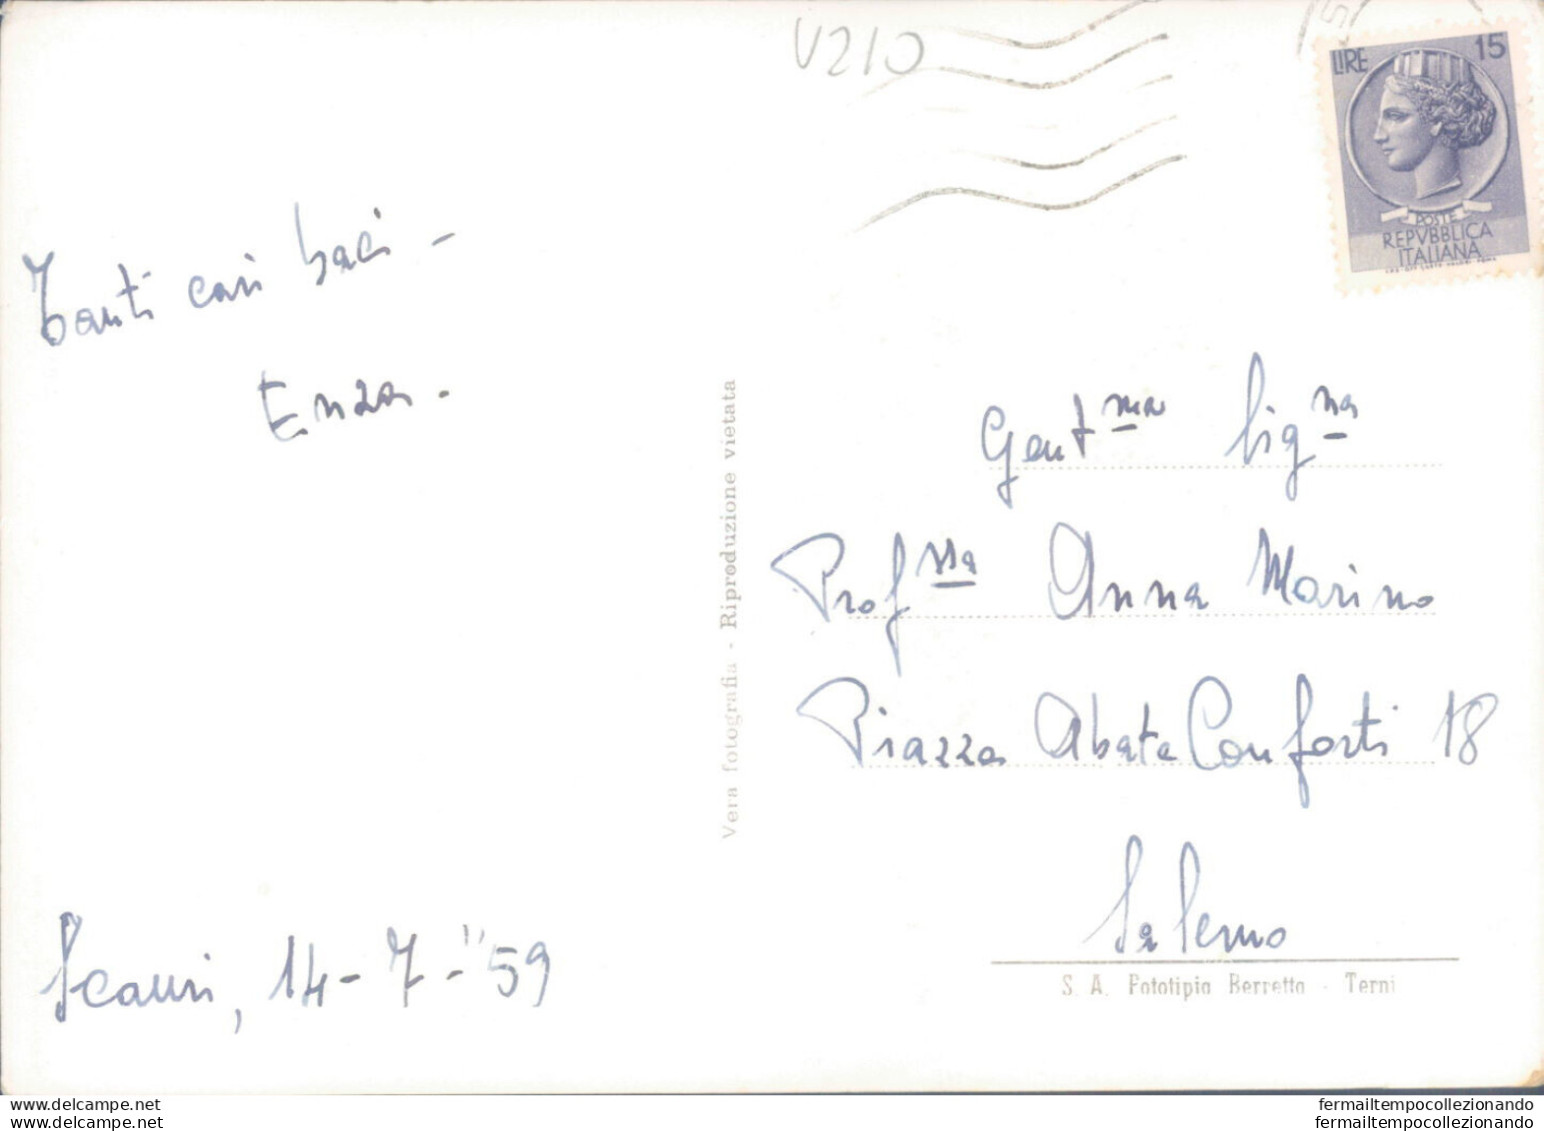 V210
LIRE 15
POSTE
REPVBBLICA
ITALIANA
Tanti cari baci -
Enza -
Scauri, 14 - 7 - "59
Vera fotografia - Riproduzione vietata
Gent ma Sig na
Prof ssa Anna Marino
Piazza Abate Conforti 18
Salerno
S. A. Fototipia Berretta - Terni
fermailtempocollezionando
fermailtempocollezionando
www.delcampe.net
www.delcampe.net